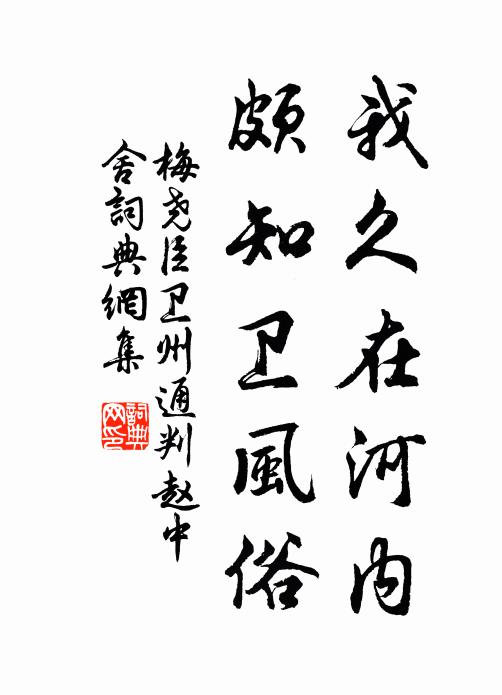 我久在河内
頗知卫風俗
梅尧臣卫州通判赵中
舍詞典網集
詞典
网印